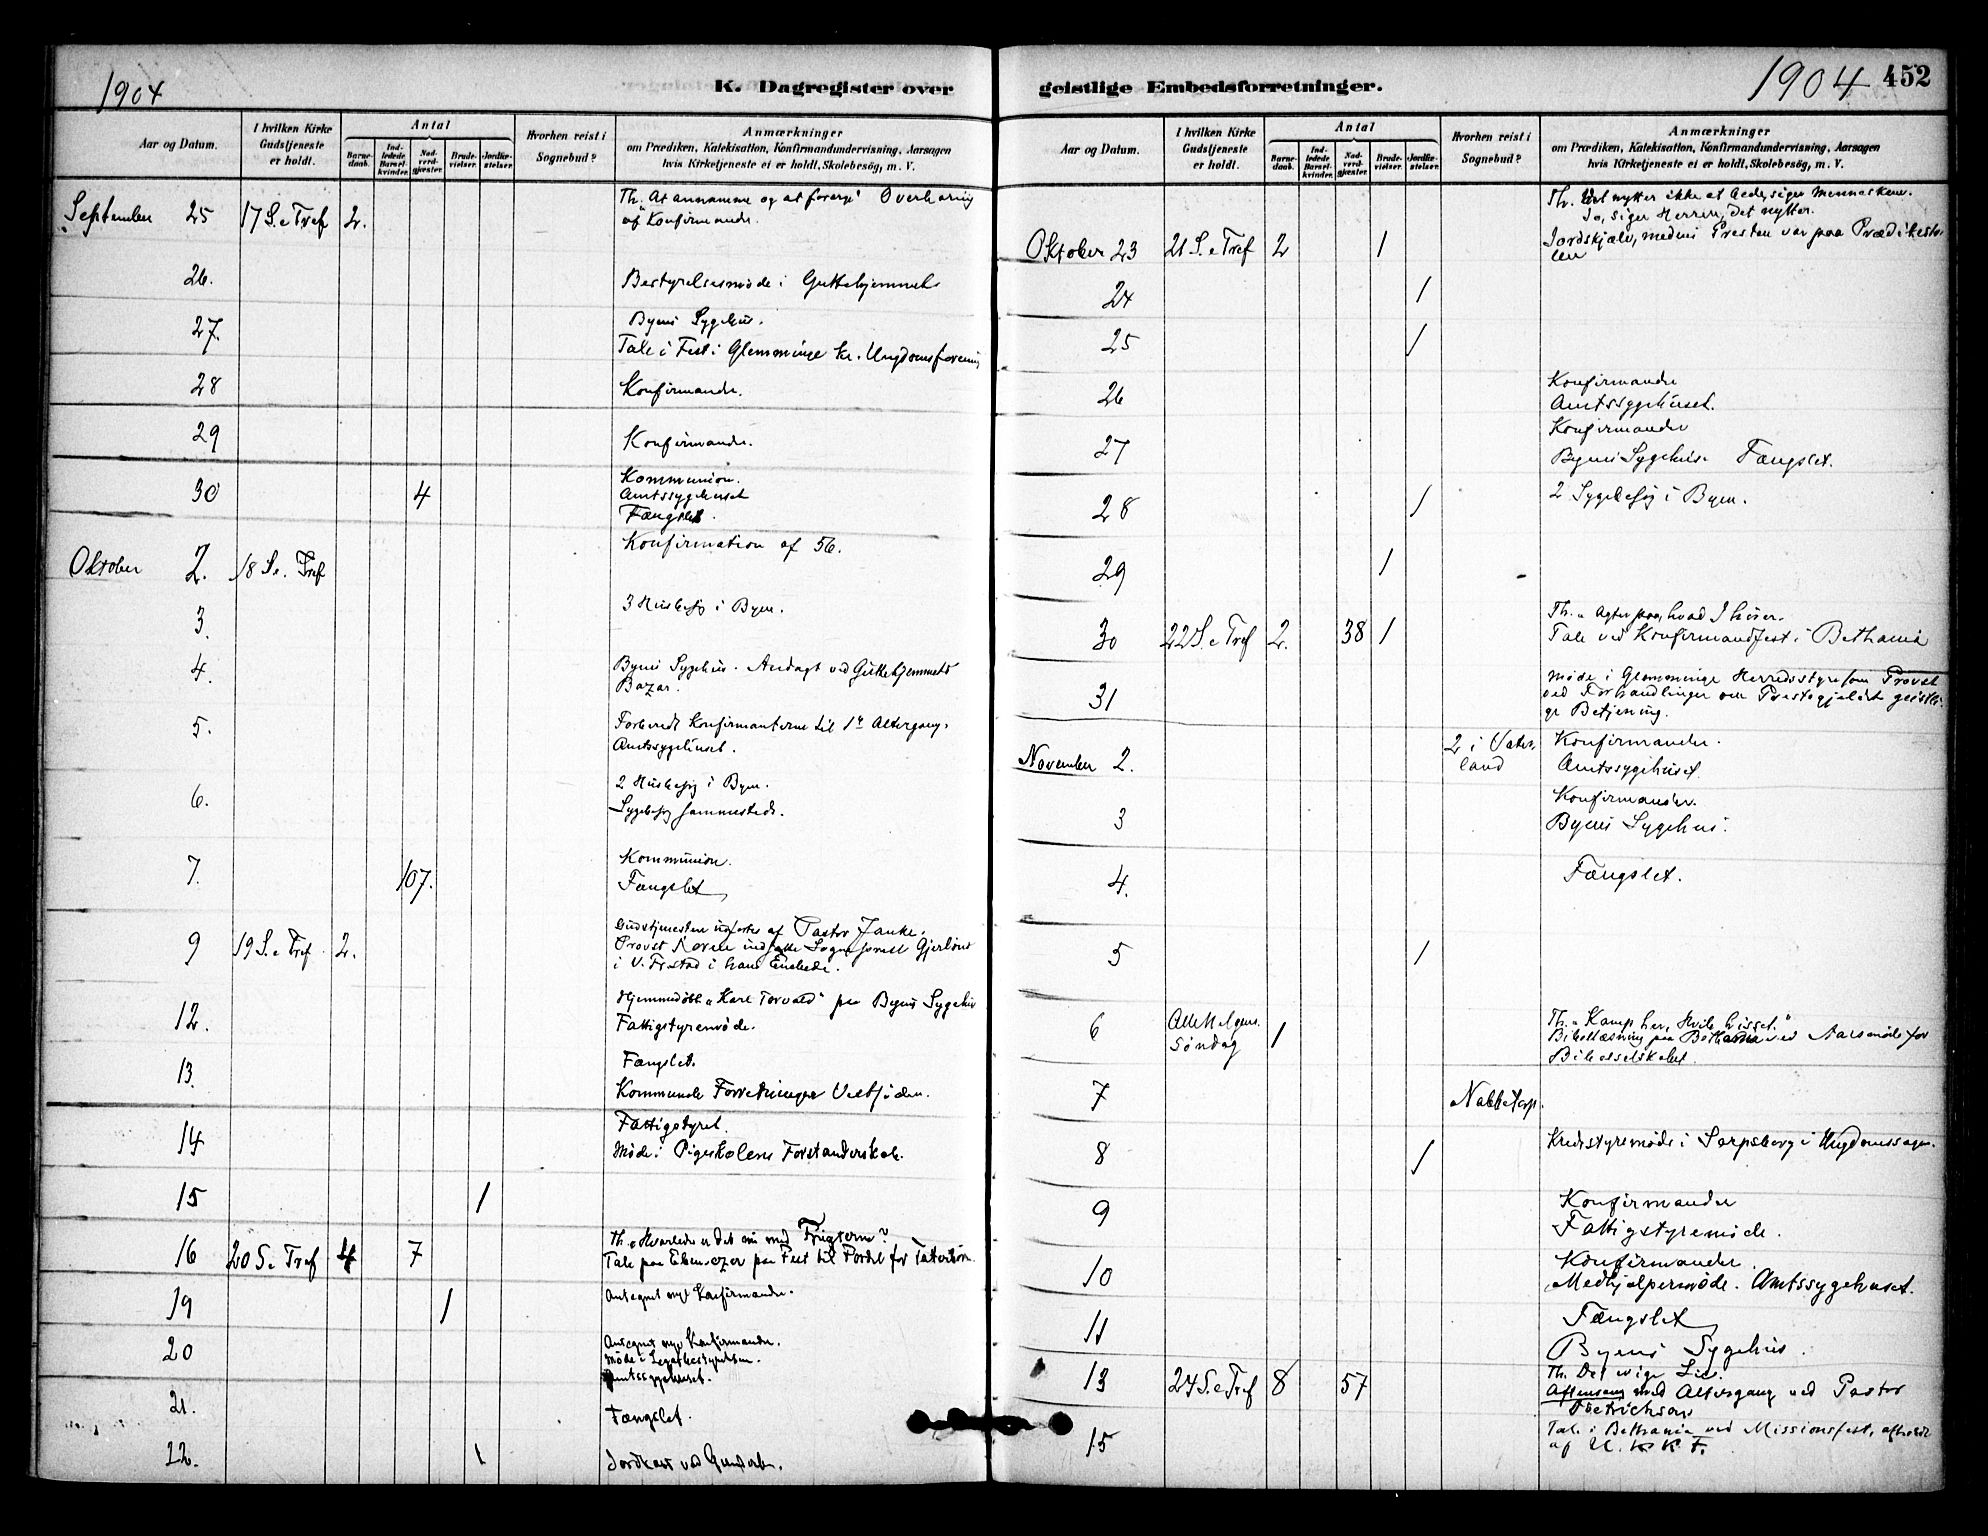 1904
K. Dagregister over
Aar og Datum.
I hvilken Kirke Gudstjeneste er holdt.
Antal
Barnedaab.
Indledede Barselkvinder.
Nadverdgjæster.
Brudevielser.
Jordfæstelser.
Hvorhen reist i Sognebud?
Anmærkninger
om Prædiken, Katekisation, Konfirmandundervisning, Aarsagen
hvis Kirketjeneste ei er holdt, Skolebesøg, m. V.
September 25 17 S. e Tref 2. Th. "At annamme og at forarge" Overhøring
af Konfirmander.
26. Bestyrelsesmøde i Guttehjemmet
27. Byens Sygehus.
Tale i Fest i Glemminge kr. Ungdomsforening
28 Konfirmander.
29 Konfirmander.
30 4 Kommunion.
Amtssygehuset
Fængslet.
Oktober 2. 18 S. e. Tref Konfirmation af 56.
3. 3 Husbesøg i Byen.
4. Byens Sygehus. Andagt ved Guttehjemmets
Bazar.
5. Forberedt Konfirmanterne til 1ste Altergang.
Amtssygehuset.
6. 2 Husbesøg i Byen.
Sygebesøg sammesteds.
7. 107. Kommunion.
Fængslet
9 19 S. e Tref 2. Gudstjenesten udførtes af Pastor Janke.
Provst Koren indsatte Sogneprest Gjerløw
i V. Fr.stad i hans Embede.
12. Hjemmedøbt "Karl Torvald" paa Byens Sygehus
Fattigstyremøde.
13. Fængslet.
Kommunale Forretninger Vestsiden.
14 Fattigstyret.
Møde i Pigeskolens Forstanderskab.
15 1
16 20 S. e Tref 4 7 Th. "Hvorledes er det nu med Frugterne?
Tale paa Ebenezer paa Fest til Fordel for Taterbørn
19 1 Antegnet nye Konfirmander.
20 Antegnet nye Konfirmander.
Møde i Legatbestyrelsen.
Amtssygehuset.
21. Fængslet.
22. 1 Jordkast ved
geistlige Embedsforretninger.
1904 452
Aar og Datum.
I hvilken Kirke Gudstjeneste er holdt.
Antal
Barnedaab.
Indledede Barselkvinder.
Nadverdgjæster.
Brudevielser.
Jordfæstelser.
Hvorhen reist i Sognebud?
Anmærkninger
om Prædiken, Katekisation, Konfirmandundervisning, Aarsagen
hvis Kirketjeneste ei er holdt, Skolebesøg, m. V.
Th. Det nytter ikke at bede, siger Menneskene.
Jo, siger Herren, det nytter.
Oktober 23 21 S. e Tref 2 1 Jordskjælv, medens Presten var paa Prædikesto-
len
24 1
25 1
26 Konfirmander
Amtssygehuset.
27 Konfirmander
Byens Sygehus. Fængslet.
28 1 2 Sygebesøg i Byen.
29 1
30 22 S. e Tref 2. 38 1 Th. "Agter paa, hvad I hører.
Tale ved Konfirmandfest i Bethania
31 Møde i Glemminge Herredsstyre som Provst
ved Forhandlinger om Prestegjeldets geistli-
ge Betjening.
November 2. 2 i Vater- Konfirmander.
land Amtssygehuset.
3 Konfirmander.
Byens Sygehus.
4. Fængslet.
5 1
6 Alle Helgens Søndag 1 Th. "Kamp her, Hvile hisset."
Bibellæsning paa Bethania ved Aarsmøde for
Bibelselskabet.
7 Nabbetorp.
8 1 Kredsstyremøde i Sarpsborg i Ungdomssagen.
9 Konfirmander
Fattigstyremøde.
10 Konfirmander.
Medhjælpermøde. Amtssygehuset.
11 Fængslet
Byens Sygehus.
13 24 S. e Tref 8 57 Th. Det evige Liv.
Aftensang med Altergang ved Pastor
Dietrichson
15 Tale i Bethania ved Missionsfest, afholdt
af U. K. F.